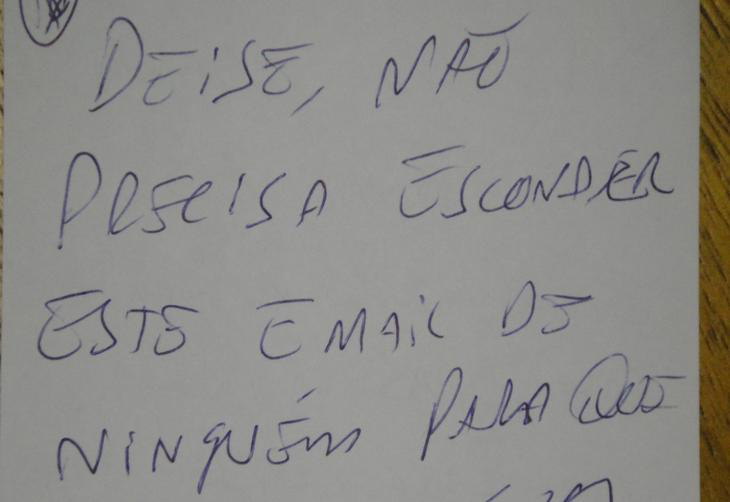 DEISE, NÃO
PRECISA ESCONDER
ESTE EMAIL DE
NINGUÉM PARA QUE